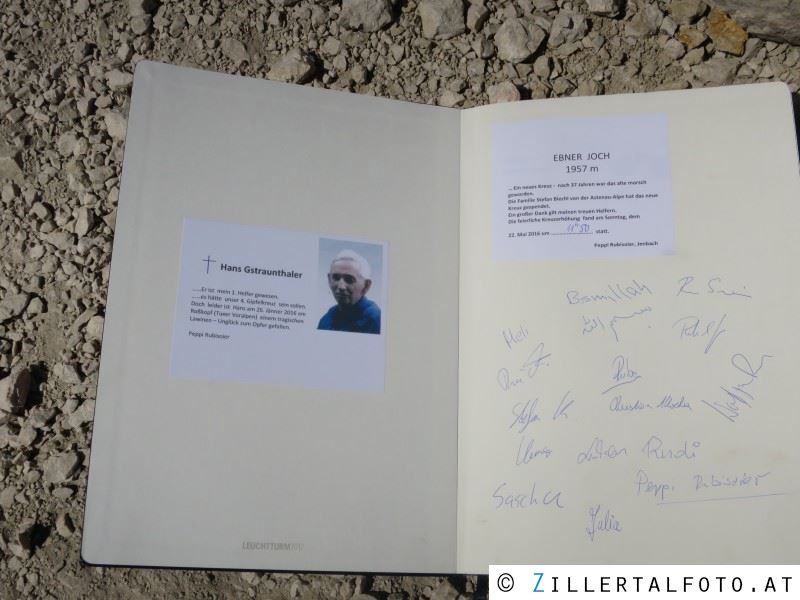 Hans Gstraunthaler
.....Er ist mein 1. Helfer gewesen.
.....es hätte unser 4. Gipfelkreuz sein sollen.
Doch leider ist Hans am 26. Jänner 2016 am
Roßkopf (Tuxer Voralpen) einem tragischen
Lawinen – Unglück zum Opfer gefallen.
Peppi Rubisoier
LEUCHTTURM1917
EBNER JOCH
1957 m
... Ein neues Kreuz - nach 37 Jahren war das alte morsch
geworden.
Die Familie Stefan Biechl von der Astenau-Alpe hat das neue
Kreuz gespendet.
Ein großer Dank gilt meinen treuen Helfern.
Die feierliche Kreuzerhöhung fand am Sonntag, dem
22. Mai 2016 um 11:50 statt.
Peppi Rubisoier, Jenbach
Bismillah
بسم الله
Meli
Stefan K
Christian
Rudi
Sascha
Peppi Rubisoier
Julia
© ZILLERTALFOTO.AT